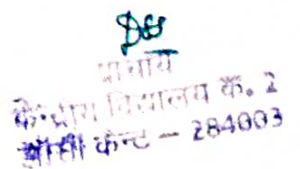 प्राचार्य
केन्द्रीय विद्यालय क्र. 2
झाँसी केन्ट - 284003